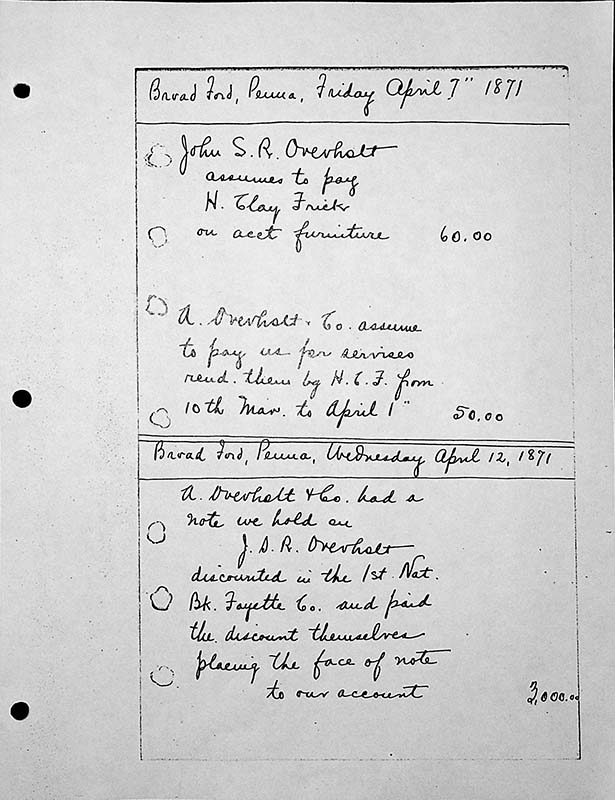 Broad Ford, Penna, Friday April 7" 1871
John S. R. Overholt
assumes to pay
H. Clay Frick
on acct furniture 60.00
A. Overholt & Co. assume
to pay us for servises
rend. them by H. C. F. from
10th Mar. to April 1" 50.00
Broad Ford, Penna, Wednesday April 12, 1871
A. Overholt & Co. had a
note we hold on
J. S. R. Overholt
discounted in the 1st Nat.
Bk. Fayette Co. and paid
the discount themselves
placing the face of note
to our account 3,000.00